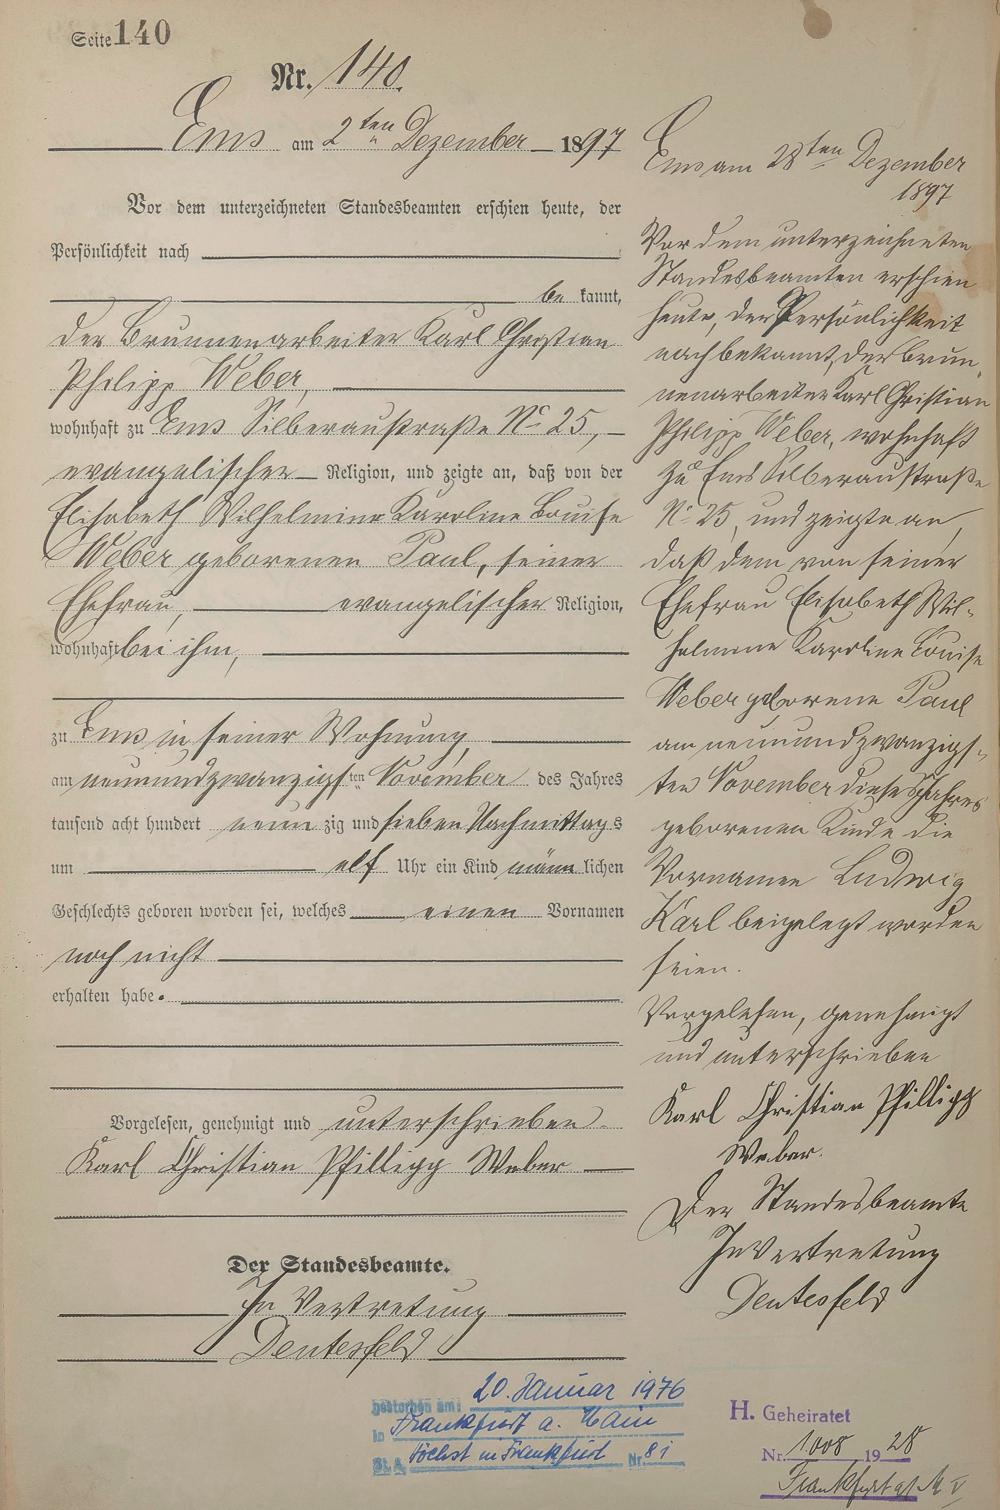 Seite 140
Nr. 140.
Ems am 2ten Dezember 1897
Vor dem unterzeichneten Standesbeamten erschien heute, der
Persönlichkeit nach
be kannt,
der Brunnenarbeiter Karl Christian
Philipp Weber,
wohnhaft zu Ems Silberaustraße No 25,
evangelischer Religion, und zeigte an, daß von der
Elisabeth Wilhelmine Karoline Louise
Weber geborenen Paul, seiner
Ehefrau, evangelischer Religion,
wohnhaft bei ihm,
zu Ems in seiner Wohnung,
am neunundzwanzigsten November des Jahres
tausend acht hundert neun zig und sieben Nachmittags
um elf Uhr ein Kind männlichen
Geschlechts geboren worden sei, welches einen Vornamen
noch nicht
erhalten habe.
Vorgelesen, genehmigt und unterschrieben.
Karl Christian Phillipp Weber
Der Standesbeamte.
In Vertretung
Dentesfeld
Ems am 28ten Dezember
1897
Vor dem unterzeichneten
Standesbeamten erschien
heute, der Persönlichkeit
nach bekannt, der Brun-
nenarbeiter Karl Christian
Philipp Weber, wohnhaft
zu Ems Silberaustraße
No 25, und zeigte an,
daß dem von seiner
Ehefrau Elisabeth Wil-
helmine Karoline Louise
Weber geborene Paul
am neunundzwanzigs-
ten November dieses Jahres
geborenen Kinde die
Vornamen Ludwig
Karl beigelegt worden
seien.
Vorgelesen, genehmigt
und unterschrieben
Karl Christian Phillipp
Weber.
Der Standesbeamte
In Vertretung
Dentesfeld
gestorben am: 20. Januar 1976
in Frankfurt a. Main
St. A. Höchst in Frankfurt Nr. 81
H. Geheiratet
Nr. 1008 1928
Frankfurt a/M V